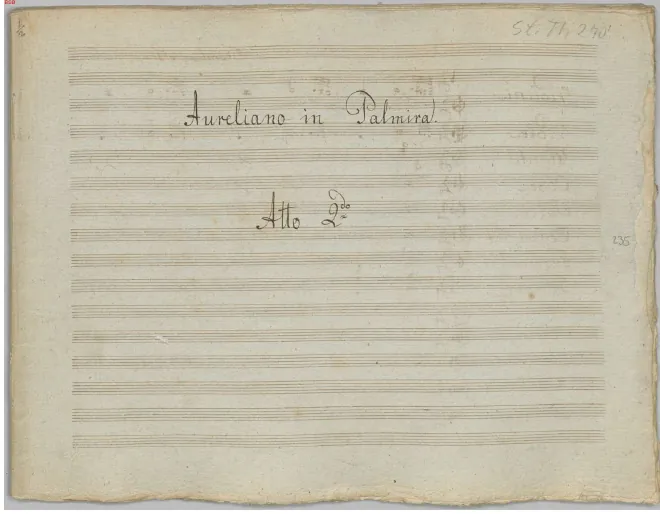 St. Th 290
Aureliano in Palmira.
Atto 2do
235